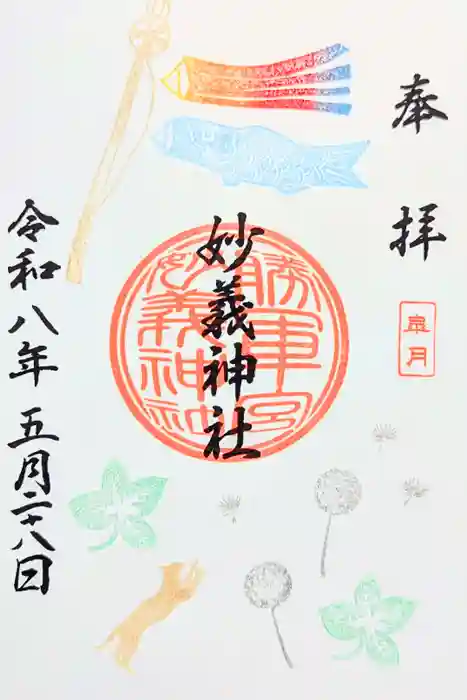 奉拝
皐月
妙義神社
令和八年五月二十八日